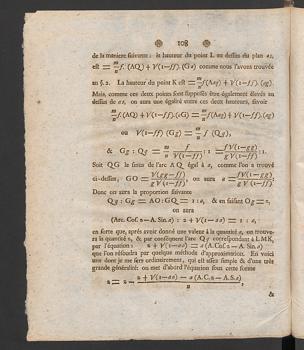 108
de la maniere suivante: la hauteur du point L au dessus du plan as,
est = m/n f. (AQ) + V(1-ff).(Gs) comme nous l'avons trouvée
au §. 2. La hauteur du point K est = m/n f(Aq) + V(1-ff).(sg)
Mais, comme ces deux points sont supposés être également élevés au
dessus de as, on aura une égalité entre ces deux hauteurs, savoir
m/n f.(AQ) + V(1-ff).(sG) = m/n f(Aq) + V(1-ff).(sg)
ou V(1-ff) (Gg) = m/n f (Qq),
& Gg : Qq = m/n f/V(1-ff) : 1 = fV(1-gg)/gV(1-ff) : 1.
Soit QG le sinus de l'arc AQ égal à s, comme l'on a trouvé
ci-dessus, GO = V(gg-ff)/gV(1-ff), on aura = fV(1-gg)/gV(1-ff)
Donc on aura la proportion suivante
Qg : Gg = AO : GQ = 1 : s, & en faisant Og = z,
on aura
(Arc. Cos. z - A. Sin. s) : z + V(1-ss) = 1 : s,
en sorte que, après avoir donné une valeur à la quantité s, on trouve-
ra la quantité z, & par conséquent l'arc Qq correspondant à LMK,
par l'équation: z + V(1-ss) = s(A.Cos z - A. Sin. s)
que l'on résoudra par quelque méthode d'approximation. En voici
une dont je me sers ordinairement, qui est assez simple & d'une très
grande généralité: on met d'abord l'équation sous cette forme
&